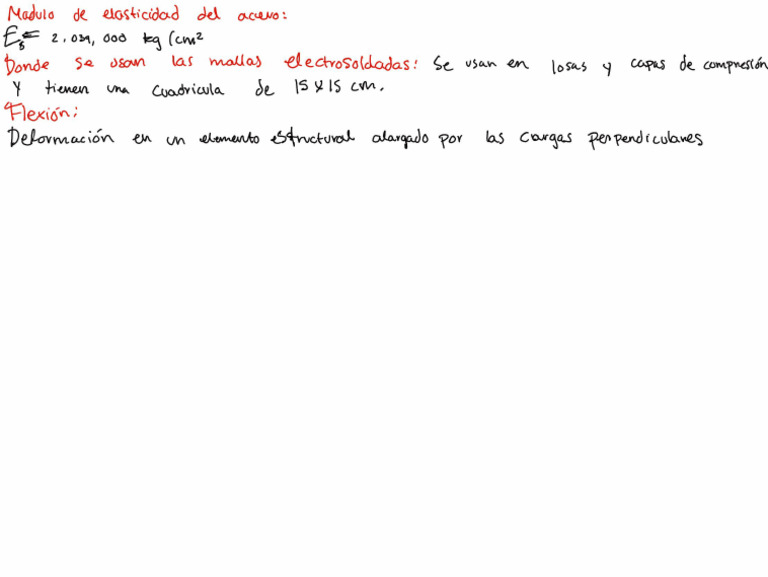 Modulo de elasticidad del acero:
Es= 2.039,000 kg/cm²
Donde se usan las mallas electrosoldadas: Se usan en losas y capas de compresión
Y tienen una cuadricula de 15x15 cm.
Flexión:
Deformación en un elemento estructural alargado por las cargas perpendiculares